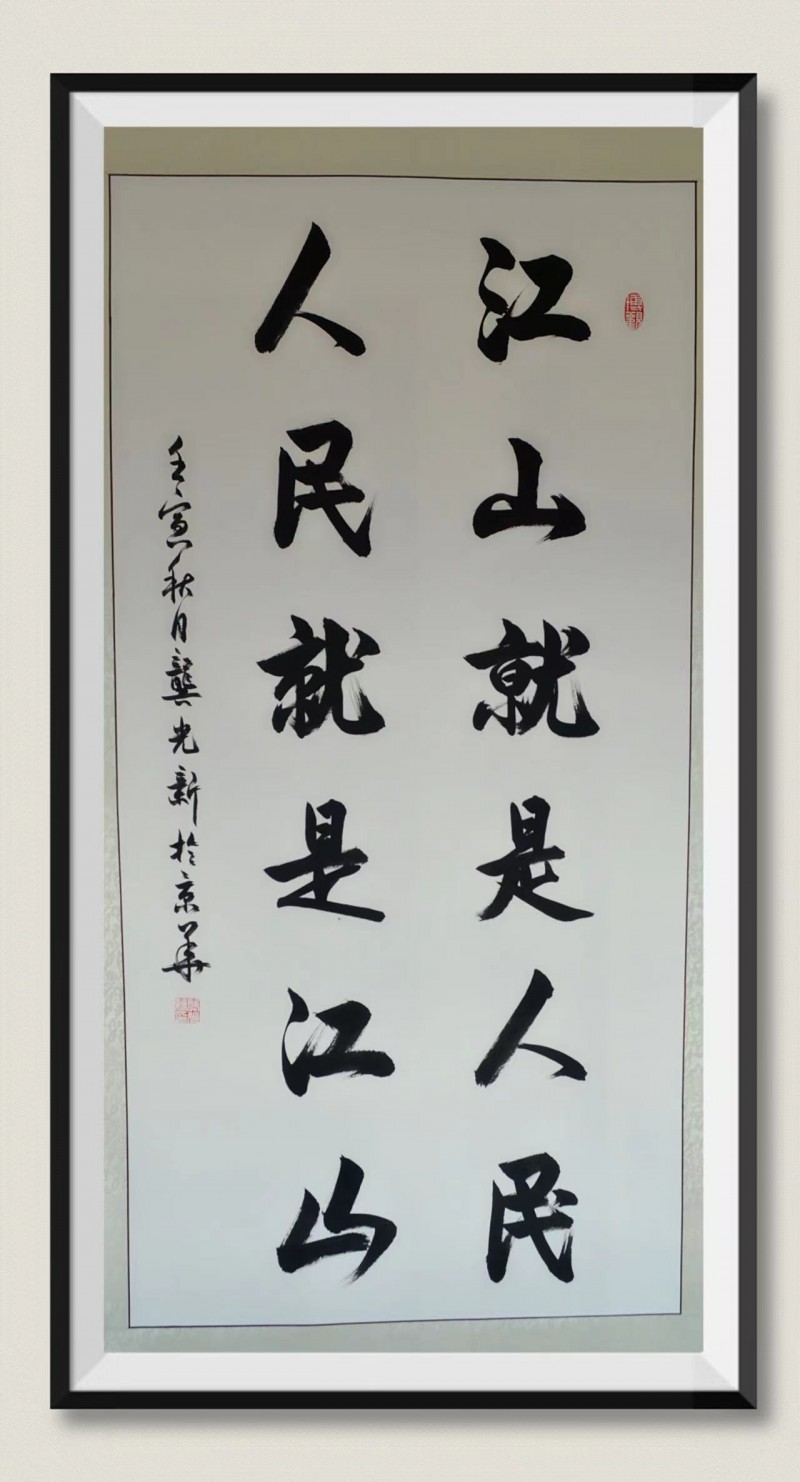 江山就是人民
人民就是江山
壬寅秋月龔光新於京華